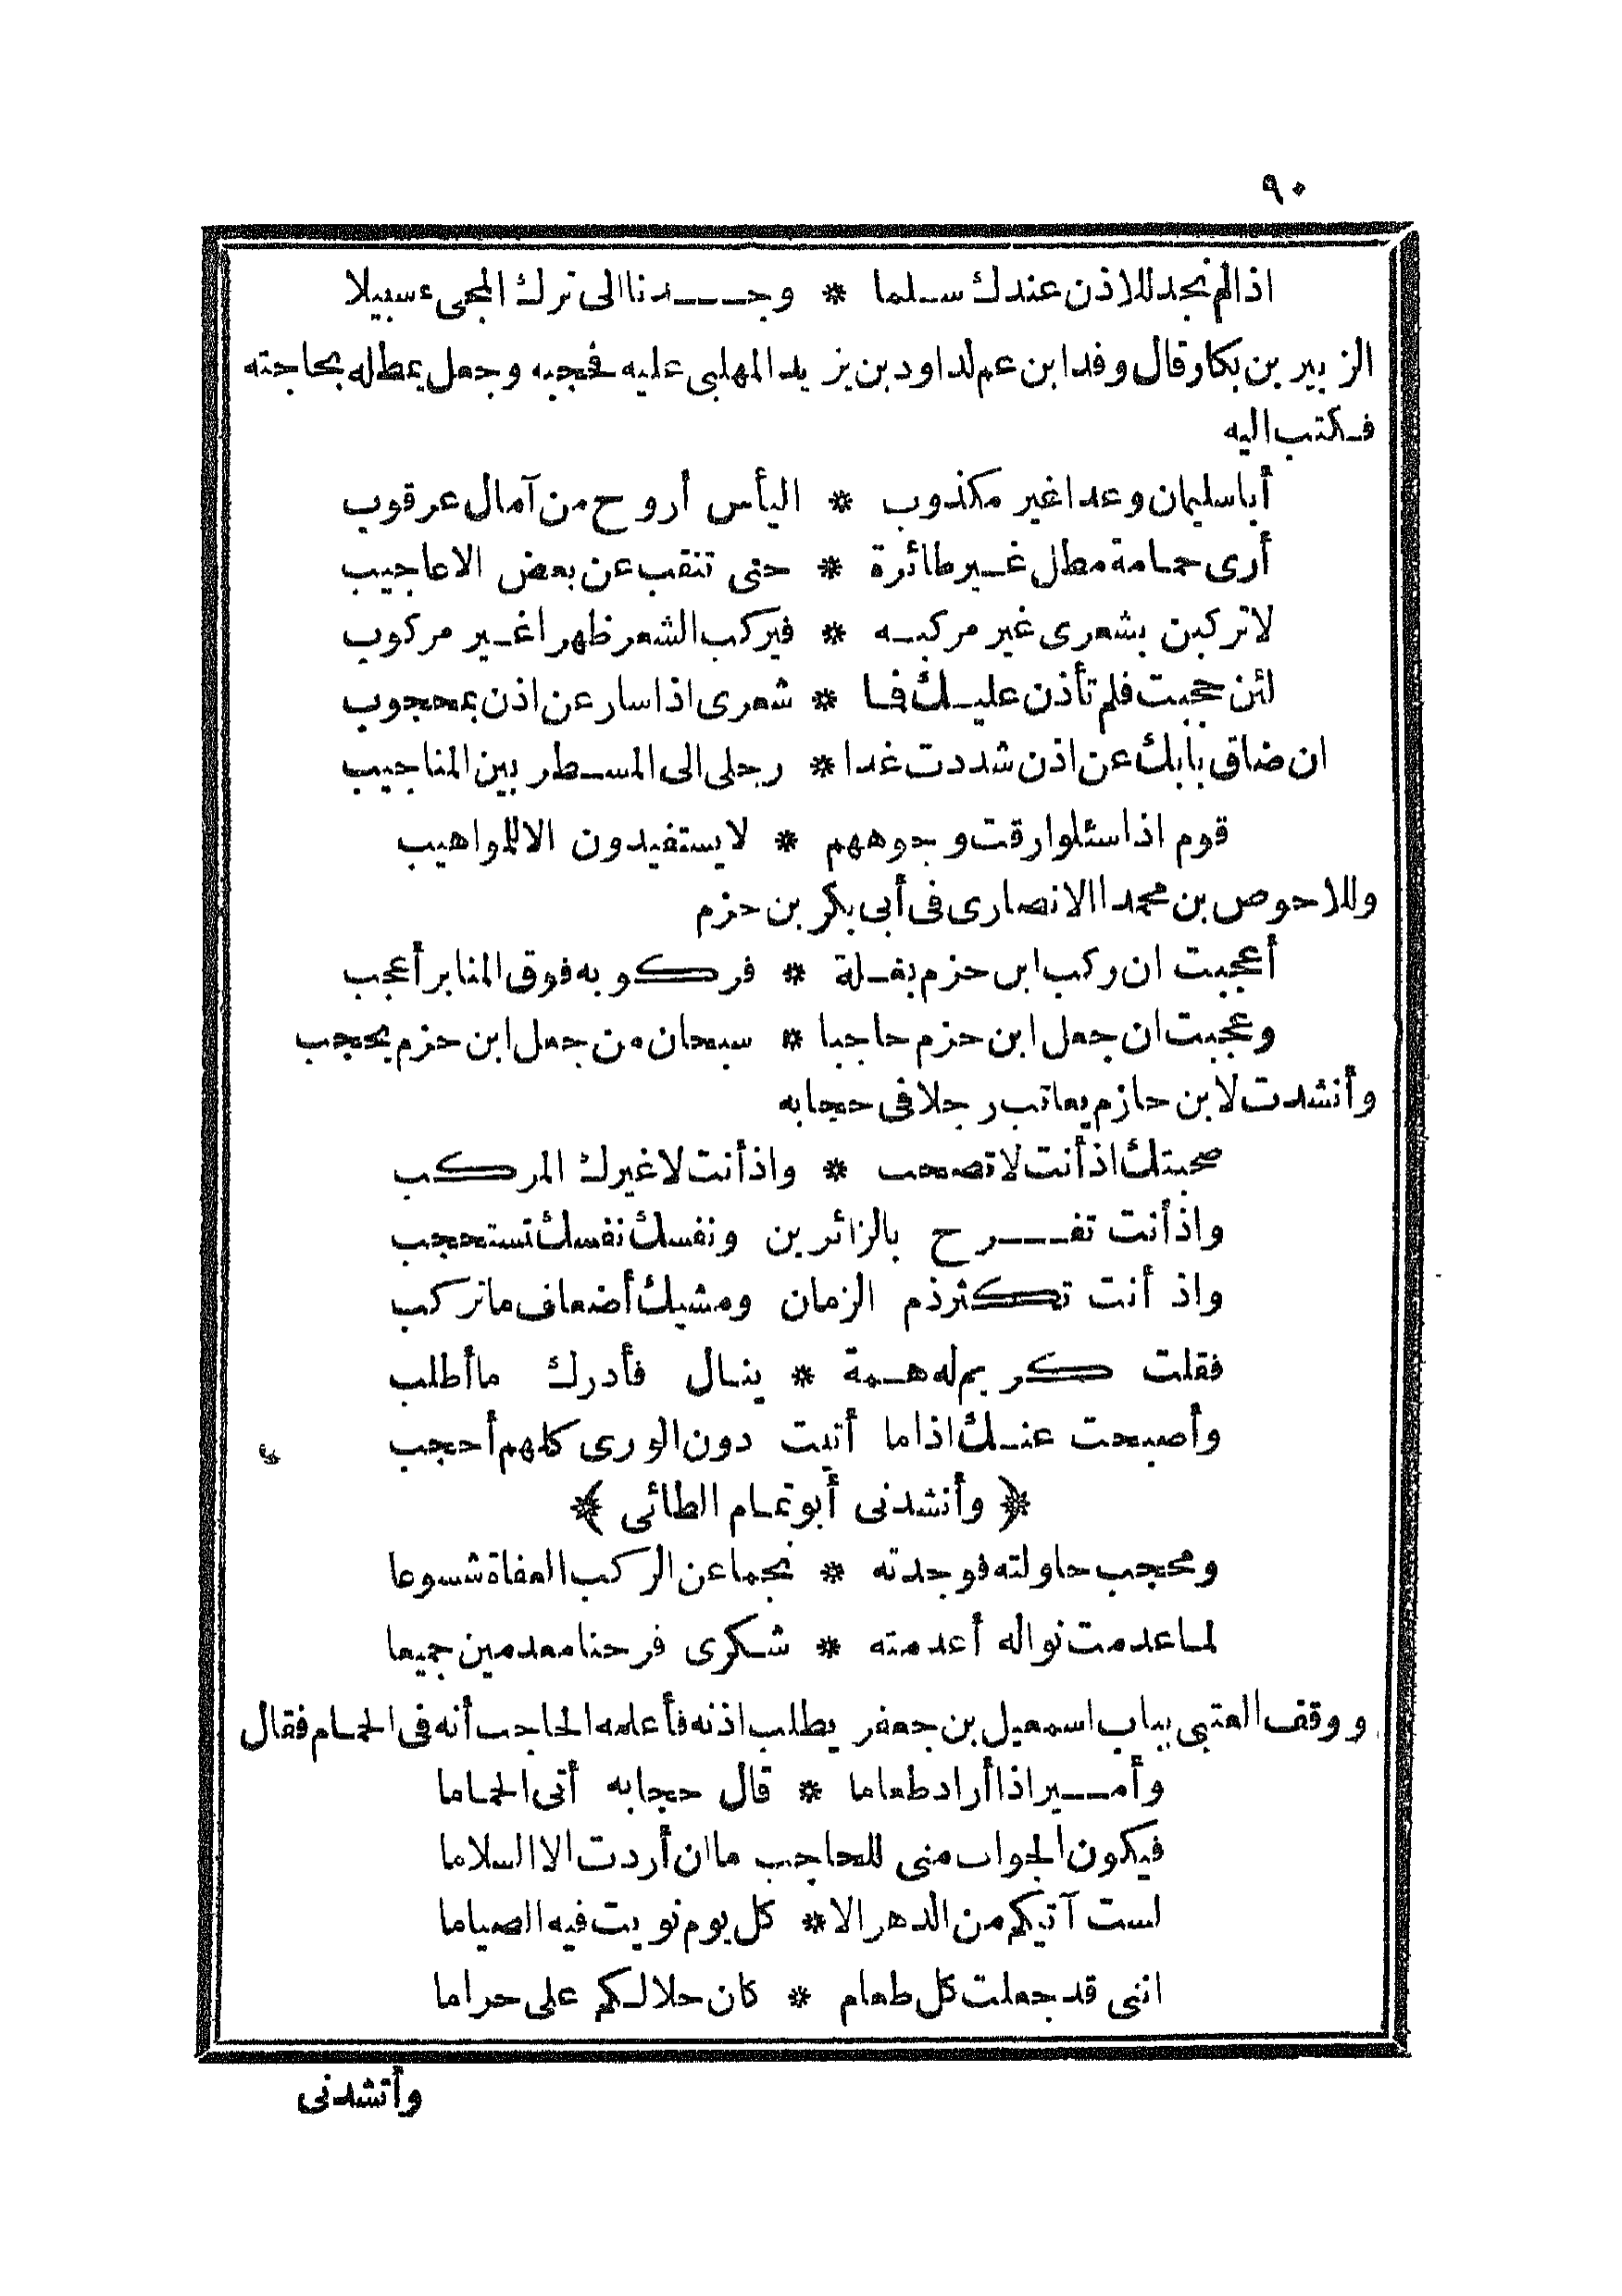 ٩٠
اذالم نجد للاذن عندك سلما * وجدنا الى ترك المجىء سبيلا
الزبير بن بكار قال وفد ابن عم لداود بن يزيد المهلبى عليه فحجبه وجعل يمطله بحاجته
فكتب اليه
أبا سليمان وعدا غير مكذوب * اليأس أروح من آمال عرقوب
أرى حمامة مطل غير طائرة * حتى تنقب عن بعض الاعاجيب
لا تركبن بشعرى غير مركبه * فيركب الشعر ظهرا غير مركوب
لئن حجبت فلم تأذن عليك فما * شعرى اذا سار عن اذن بمحجوب
ان ضاق بابك عن اذن شددت غدا * رجلى الى المسطر بين المناجيب
قوم اذا سئلوا رقت وجوههم * لا يستفيدون الا للمواهيب
وللاحوص بن محمد االانصارى فى أبى بكر بن حزم
أعجبت ان ركب ابن حزم بغلة * فركوبه فوق المنابر أعجب
وعجبت ان جعل ابن حزم حاجبا * سبحان من جعل ابن حزم يحجب
وأنشدت لابن حازم يعاتب رجلا فى حجابه
صحبتك اذ أنت لا تصحب * واذ أنت لا غيرك المركب
واذ أنت تفرح بالزائرين ونفسك نفسك تستحجب
واذ أنت تكثر ذم الزمان ومشيك أضعاف ما تركب
فقلت كريم له همة * ينال فأدرك ما أطلب
وأصبحت عنك اذا ما أتيت دون الورى كلهم أحجب
﴿ وأنشدنى أبو تمام الطائى ﴾
ومحجب حاولته فوجدته * نجما عن الركب العفاة شسوعا
لما عدمت نواله أعدمته * شكرى فرحنا معدمين جميعا
ووقف العتبى بباب اسمعيل بن جعفر يطلب اذنه فأعلمه الحاجب أنه فى الحمام فقال
وأمير اذا أراد طعاما * قال حجابه أتى الحماما
فيكون الجواب منى للحاجب ما ان أردت الا السلاما
لست آتيكم من الدهر الا * كل يوم نويت فيه الصياما
اننى قد جعلت كل طعام * كان حلالكم على حراما
وأنشدنى